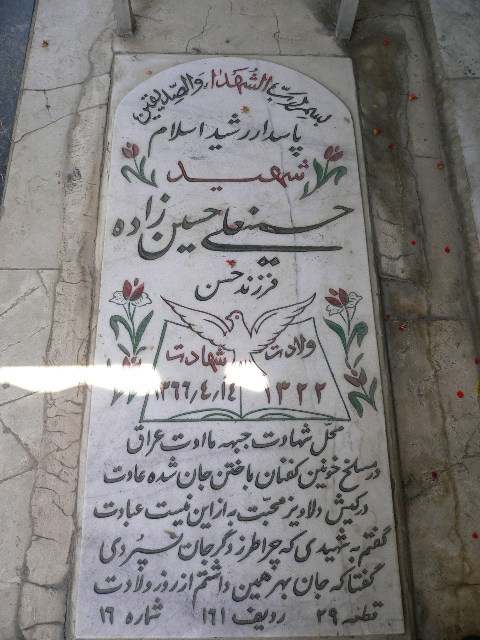 بسم رب الشهداء والصدیقین
پاسدار رشید اسلام
شهید
حسینعلی حسین زاده
فرزند حسن
ولادت شهادت
۱۳۲۲ ۱۳۶۶/۴/۱۴
محل شهادت جبهه مااوت عراق
در مسلخ خونین کفنان باختن جان شده عادت
در کیش دلاویز محبت به از این نیست عبادت
گفتم به شهیدی که چرا طرز دگر جان نسپردی
گفتا که جان بهر همین داشتم از روز ولادت
قطعه ۲۹ ردیف ۱۶۱ شماره ۱۶